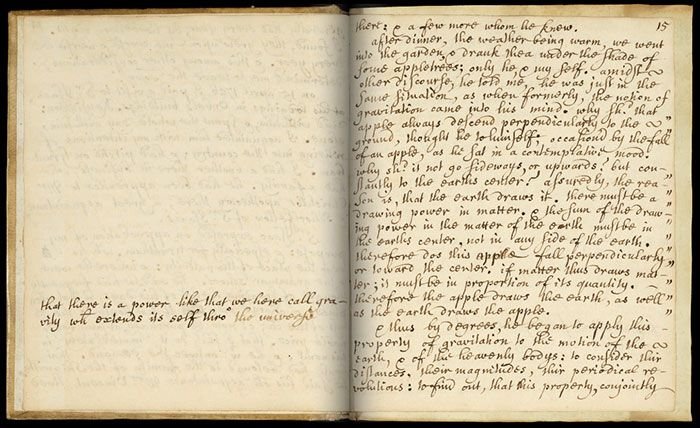 that there is a power like that we here call gra-
vity wh extends its self thro the universe
15
there: & a few more whom he knew.
after dinner, the weather being warm, we went
into the garden, & drank thea under the shade of
some appletrees; only he, & my self. amidst
other discourse, he told me, he was just in the
same situation, as when formerly, the notion of
gravitation came into his mind. why sh. that
apple always descend perpendicularly to the
ground, thought he to himself: occasion'd by the fall
of an apple, as he sat in a contemplative mood.
why sh. it not go sideways, or upwards? but con-
stantly to the earths center? assuredly, the rea-
son is, that the earth draws it. there must be a
drawing power in matter. & the sum of the draw-
ing power in the matter of the earth must be in
the earths center, not in any side of the earth.
therefore dos this apple fall perpendicularly
or toward the center. if matter thus draws mat-
ter; it must be in proportion of its quantity.
therefore the apple draws the earth, as well
as the earth draws the apple.
& thus by degrees, he began to apply this
property of gravitation to the motion of the
earth, & of the heavenly bodys: to consider thir
distances, their magnitudes, thir periodical re-
volutions: to find out, that this property, conjointly